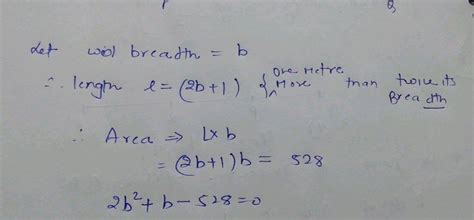 Let breadth = b
∴ length l = (2b+1) { One Metre More than twice its Breadth
∴ Area ⇒ L×b
= (2b+1)b = 528
2b²+b-528=0